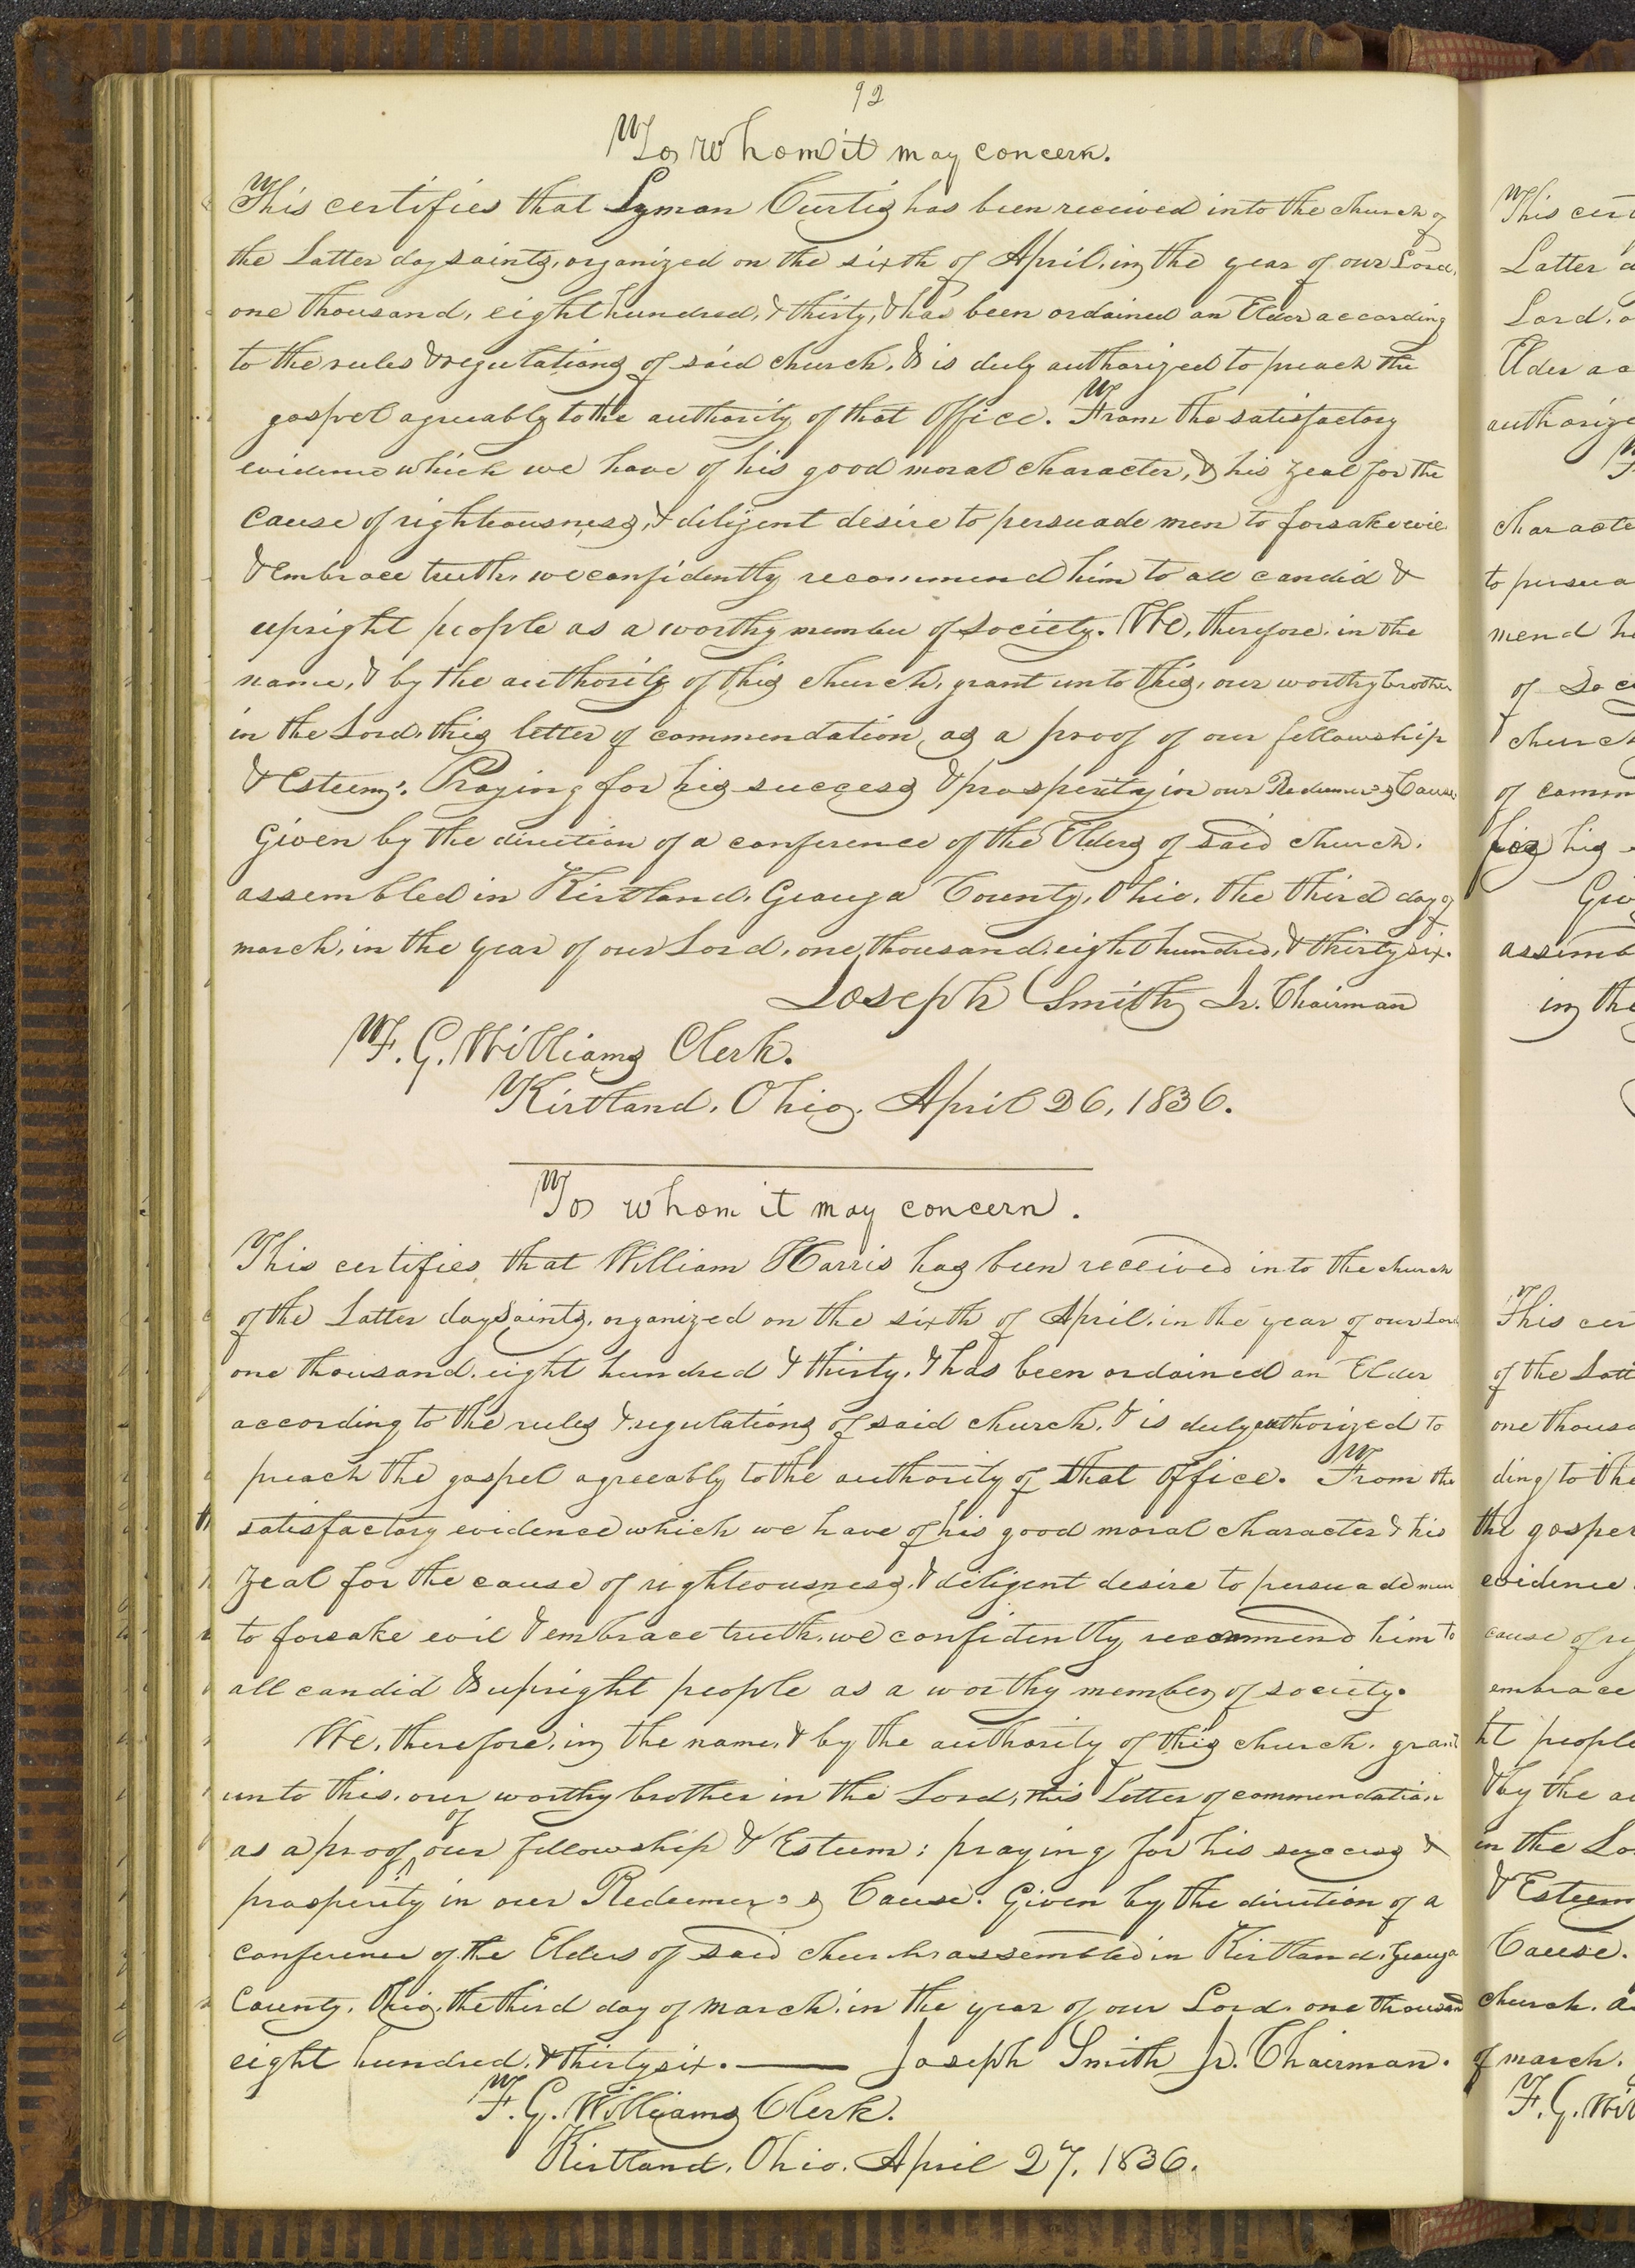 92
To Whom it may concern.
This certifies that Lyman Curtis has been received into the church of
the Latter day saints, organized on the sixth of April, in the year of our Lord,
one thousand, eight hundred, & thirty, & has been ordained an Elder according
to the rules & regulations of said church, & is duly authorized to preach the
gospel agreeably to the authority of that Office. From the satisfactory
evidence which we have of his good moral character, & his zeal for the
cause of righteousness, & diligent desire to persuade men to forsake evil
& embrace truth, we confidently recommend him to all candid &
upright people as a worthy member of society. We, therefore, in the
name, & by the authority of this church, grant unto this, our worthy brother
in the Lord, this letter of commendation, as a proof of our fellowship
& Esteem: Praying for his success & prosperity in our Redeemer's Cause.
Given by the direction of a conference of the Elders of said church,
assembled in Kirtland, Geauga County, Ohio, the third day of
march, in the year of our Lord, one thousand, eight hundred, & thirty six.
Joseph Smith Jr. Chairman
F. G. Williams Clerk.
Kirtland, Ohio, April 26, 1836.
To whom it may concern.
This certifies that William Harris has been received into the church
of the Latter day Saints, organized on the sixth of April, in the year of our Lord
one thousand, eight hundred & thirty, & has been ordained an Elder
according to the rules & regulations of said church, & is duly authorized to
preach the gospel agreeably to the authority of that office. From the
satisfactory evidence which we have of his good moral character & his
zeal for the cause of righteousness, & diligent desire to persuade men
to forsake evil & embrace truth, we confidently recommend him to
all candid & upright people as a worthy member of society.
We, therefore, in the name, & by the authority of this church, grant
unto this, our worthy brother in the Lord, this letter of commendation
as a proof of our fellowship & Esteem: praying for his success &
prosperity in our Redeemer's Cause. Given by the direction of a
conference of the Elders of said church assembled in Kirtland, Geauga
County, Ohio, the third day of march, in the year of our Lord, one thousand
eight hundred, & thirty six. — Joseph Smith Jr. Chairman.
F. G. Williams Clerk.
Kirtland, Ohio, April 27, 1836.
This cer
Latter d
Lord, o
Elder ac
authorize
characte
to persua
mend hi
of Soci
& church
of comm
for his
Giv
assemb
in the
This cer
of the Latt
one thousa
ding to the
the gospel
evidence
cause of ri
embrace
ht people
& by the au
in the Lo
& Esteem
Cause.
church, a
of march,
F. G. Wil